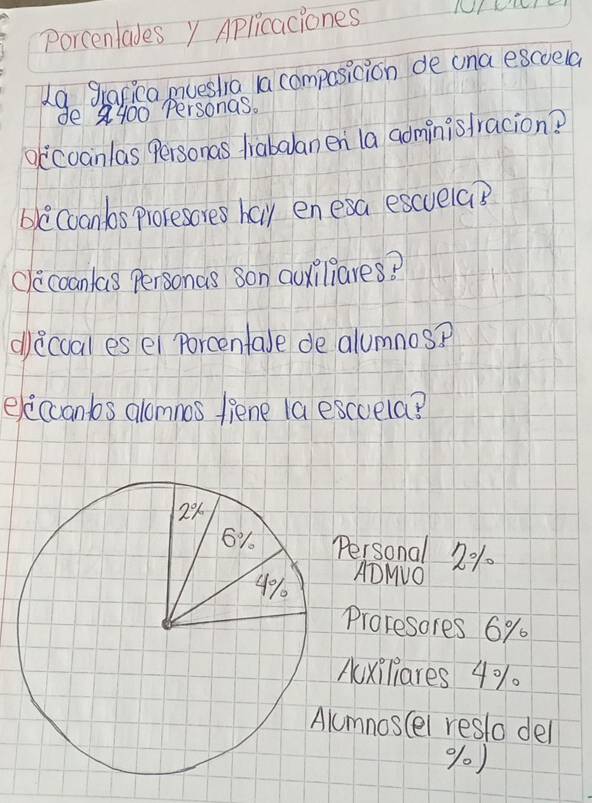 Porcentajes y Aplicaciones
La grafica muestra la composicion de una escuela
de 2400 Personas.
a) ¿cuantas Personas trabajan en la administracion?
b) ¿cuantos profesores hay en esa escuela?
c) ¿cuantas Personas son auxiliares?
d) ¿cual es el Porcentaje de alumnos?
e) ¿cuantos alumnos tiene la escuela?
2%
6%
4%
Personal 2%
ADMVO
Profesores 6%
Auxiliares 4%
Alumnos (el resto del
%)